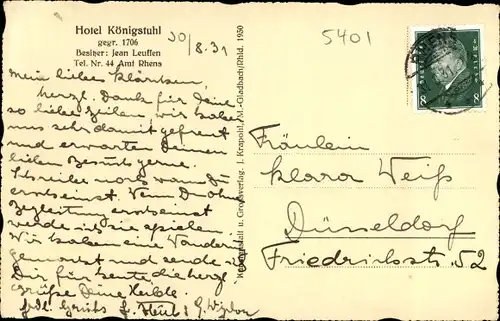 Hotel Königstuhl
gegr. 1706
Besitzer: Jean Leuffen
Tel. Nr. 44 Amt Rhens
30/8.31
5401
Mein liebes Klärchen,
herzl. Dank für Deine
so lieben Zeilen, wir haben
uns sehr damit gefreut
und erwarten Deinen
lieben Besuch gerne.
Schreibe noch wann Du
erscheinst. Wenn Du ohne
Begleitung erscheinst
werde ich sie spielen.
Wir haben eine Wanderung
gemacht und sende ich
Dir für heute die herzl.
Grüße Deine Hertha.
frdl. Grüße
Kunstanstalt u. Großverlag. J. Krapohl, M.-Gladbach/Rhld. 1930
Fräulein
Klara Weiß
Düsseldorf
Friedrichstr. 52